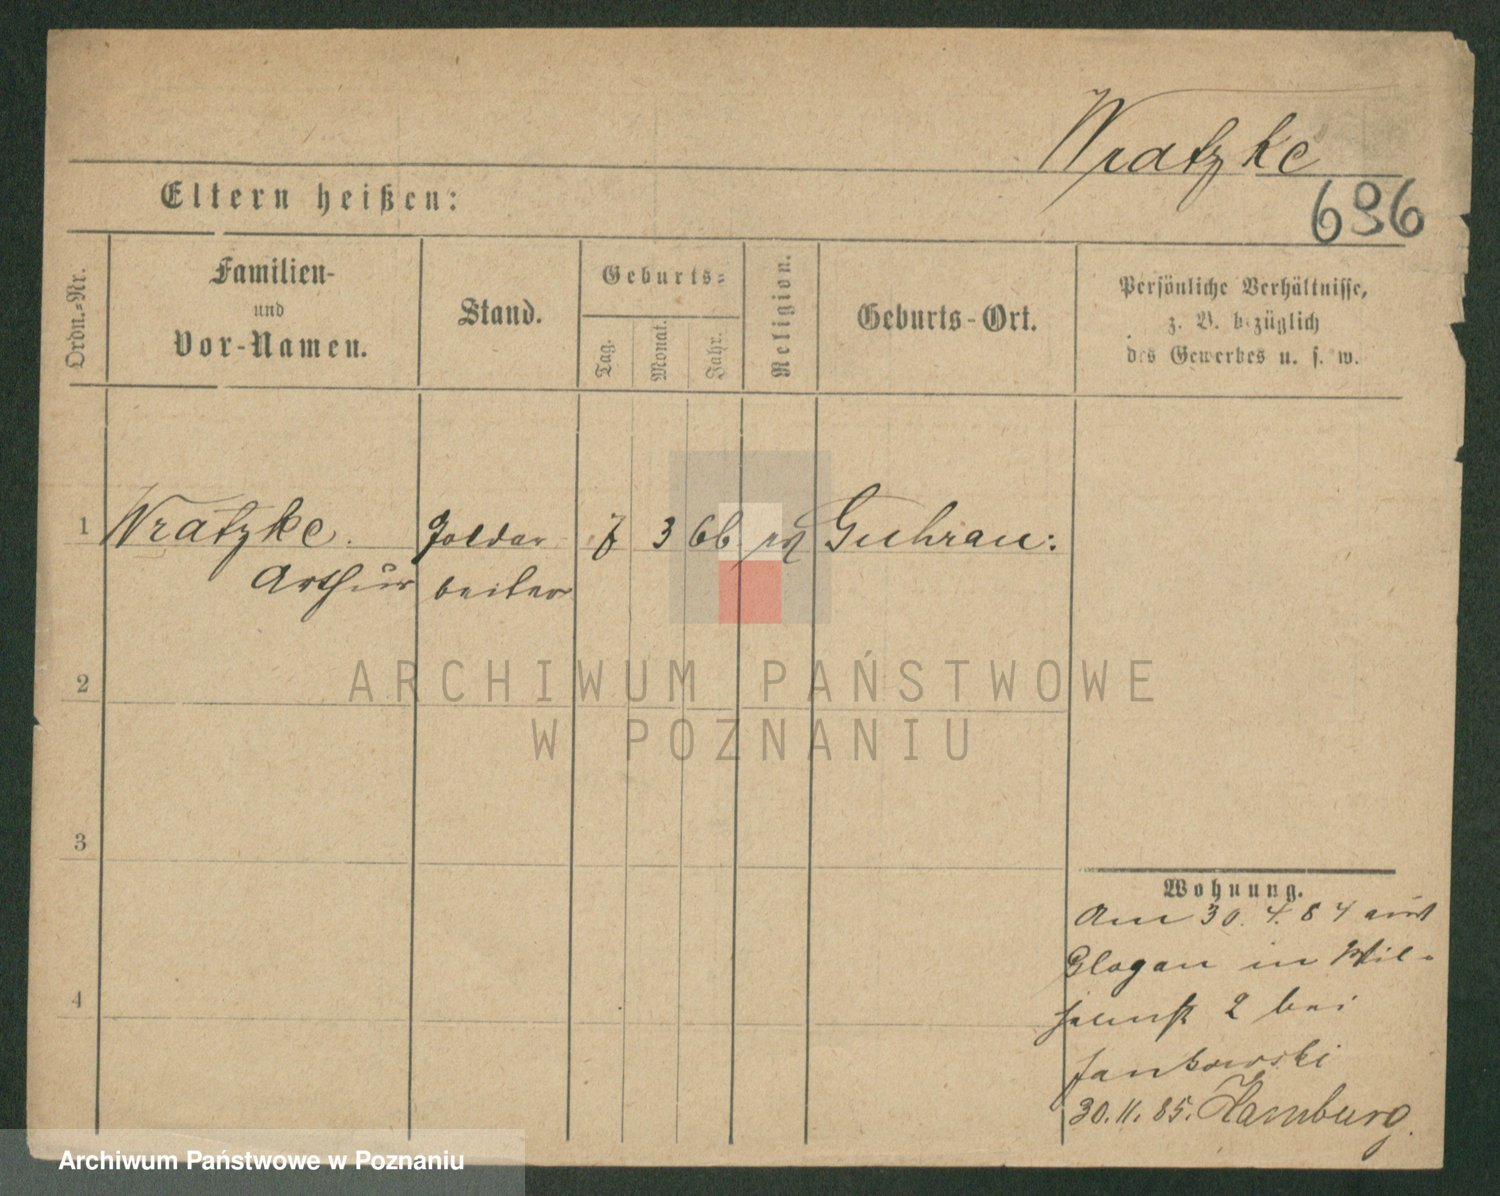 Wratzke
696
Eltern heißen:
Ordn.-Nr.
Familien-
und
Vor-Namen.
Stand.
Geburts-
Tag.
Monat.
Jahr.
Religion.
Geburts-Ort.
Persönliche Verhältnisse,
z. B. bezüglich
des Gewerbes u. s. w.
1 Wratzke. Goldar 7 3 66 Guhrau:
Arthur beiter
2
3
4
ARCHIWUM PAŃSTWOWE
W POZNANIU
Wohnung.
Am 30. 4. 84 aus
Glogau in Wil-
helmst 2 bei
Jankowski
30.11.85. Hamburg.
Archiwum Państwowe w Poznaniu